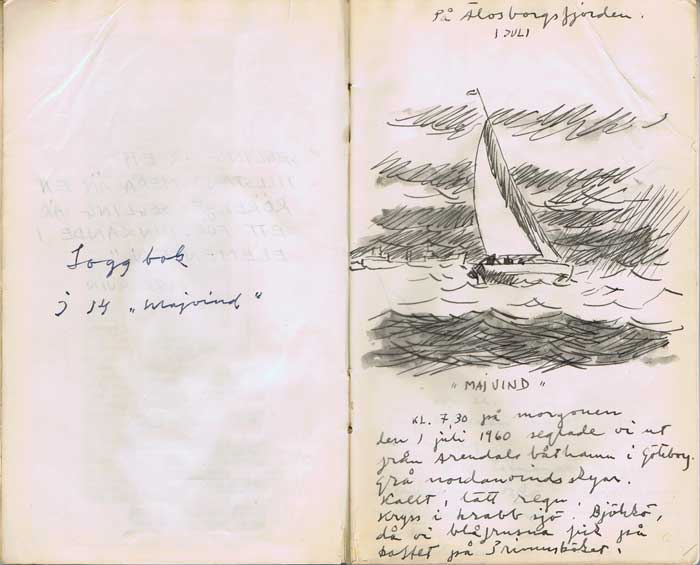 Logg bok
j 14 „Majvind“
På Älvsborgsfjorden.
1 JULI
„MAJVIND“
KL. 7,30 på morgonen
den 1 juli 1960 seglade vi ut
från Arendals båthamn i Göteborg.
Grå nordanvindsskyar.
Kallt, lätt regn.
Kryss i krabb sjö. Björkö,
då vi blåfrusna fick på
kaffet på